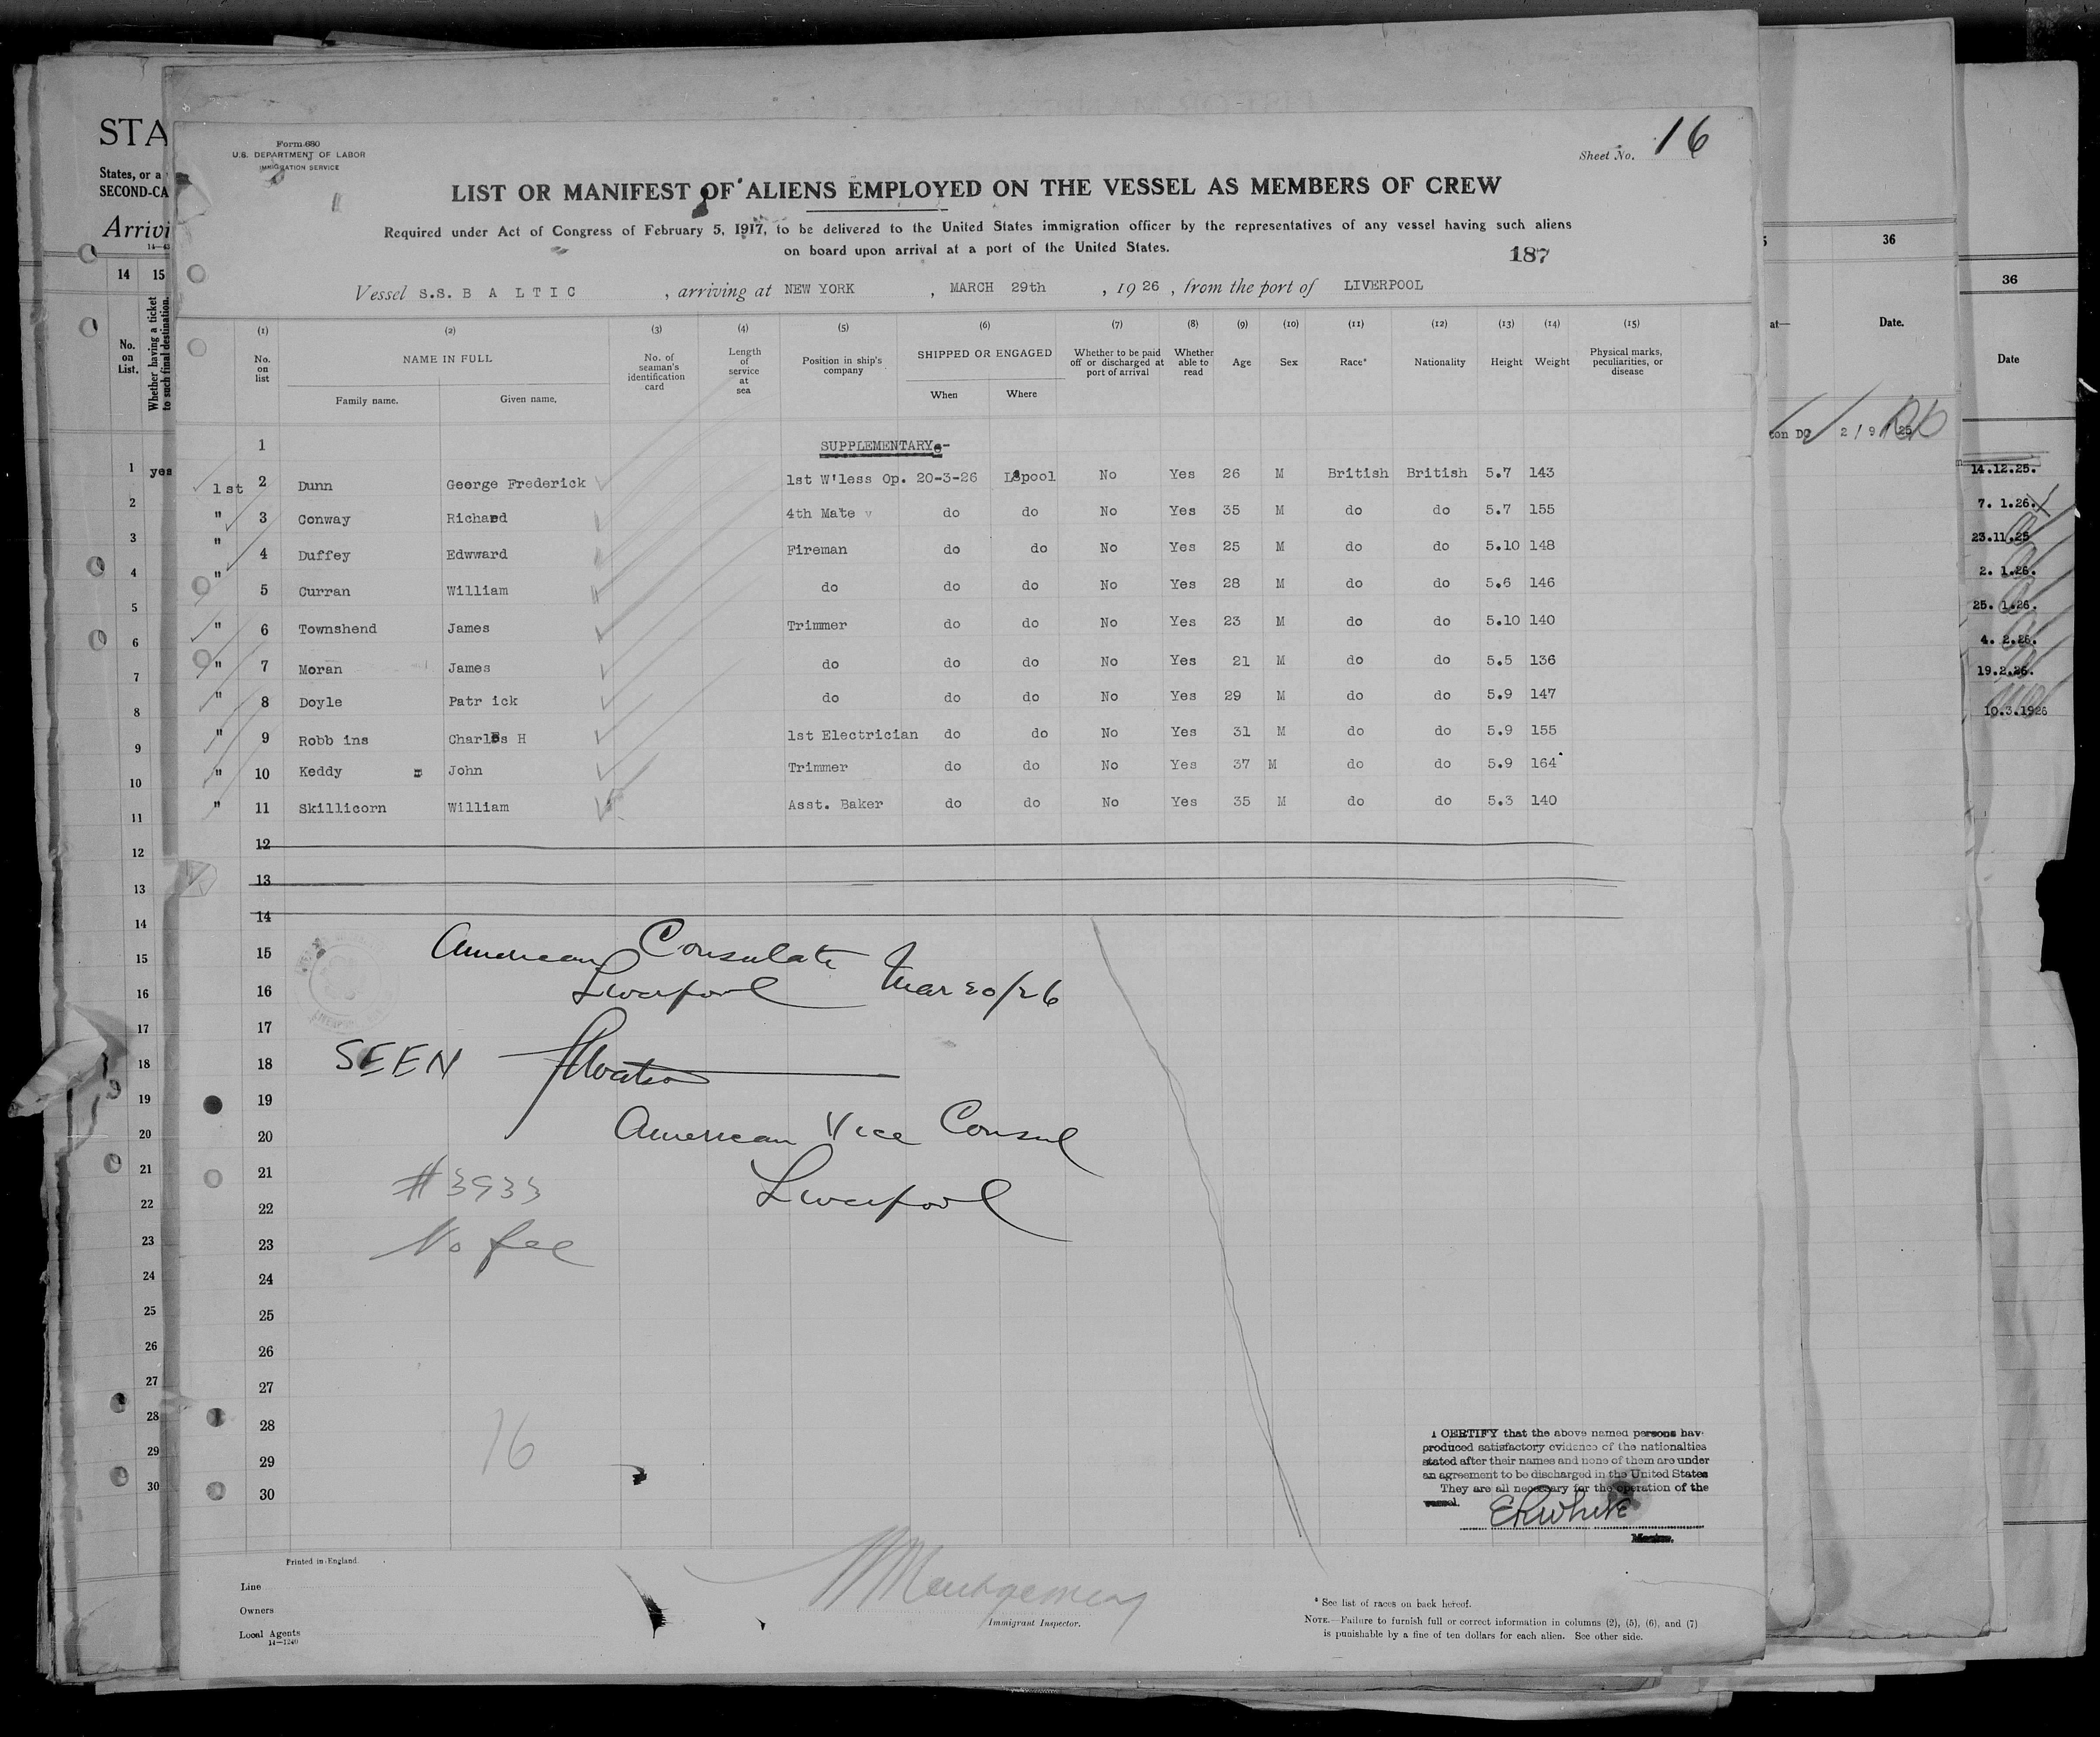 STA
States, or a
SECOND-CA
Arrivi
14 15
No. on List.
Whether having a ticket to such final destination.
yes
Form 680
U.S. DEPARTMENT OF LABOR
IMMIGRATION SERVICE
Sheet No. 16
LIST OR MANIFEST OF ALIENS EMPLOYED ON THE VESSEL AS MEMBERS OF CREW
Required under Act of Congress of February 5, 1917, to be delivered to the United States immigration officer by the representatives of any vessel having such aliens
on board upon arrival at a port of the United States.
187
Vessel S.S. B A L T I C , arriving at NEW YORK , MARCH 29th , 19 26 , from the port of LIVERPOOL
(1) (2) (3) (4) (5) (6) (7) (8) (9) (10) (11) (12) (13) (14) (15)
No. on list
NAME IN FULL
Family name. Given name.
No. of seaman's identification card
Length of service at sea
Position in ship's company
SHIPPED OR ENGAGED
When Where
Whether to be paid off or discharged at port of arrival
Whether able to read
Age
Sex
Race*
Nationality
Height
Weight
Physical marks, peculiarities, or disease
1 SUPPLEMENTARY
1st 2 Dunn George Frederick 1st W'less Op. 20-3-26 L'pool No Yes 26 M British British 5.7 143
" 3 Conway Richard 4th Mate do do No Yes 35 M do do 5.7 155
" 4 Duffey Edwward Fireman do do No Yes 25 M do do 5.10 148
" 5 Curran William do do do No Yes 28 M do do 5.6 146
" 6 Townshend James Trimmer do do No Yes 23 M do do 5.10 140
" 7 Moran James do do do No Yes 21 M do do 5.5 136
" 8 Doyle Patr ick do do do No Yes 29 M do do 5.9 147
" 9 Robb ins Charles H 1st Electrician do do No Yes 31 M do do 5.9 155
" 10 Keddy John Trimmer do do No Yes 37 M do do 5.9 164
" 11 Skillicorn William Asst. Baker do do No Yes 35 M do do 5.3 140
12
13
14
15 American Consulate
16 Liverpool Mar 20/26
17
18 SEEN
19
20 American Vice Consul
21 #3933
22 Liverpool
23 No fee
24
25
26
27
28
29 16
30
I CERTIFY that the above named persons have
produced satisfactory evidence of the nationalties
stated after their names and none of them are under
an agreement to be discharged in the United States
They are all necessary for the operation of the
vessel.
E R White
Master.
Printed in England.
Line
Owners
Local Agents
14—1240
Montgomery
Immigrant Inspector.
* See list of races on back hereof.
NOTE.—Failure to furnish full or correct information in columns (2), (5), (6), and (7)
is punishable by a fine of ten dollars for each alien. See other side.
1
2
3
4
5
6
7
8
9
10
11
12
13
14
15
16
17
18
19
20
21
22
23
24
25
26
27
28
29
30
36
at—
Date.
ton DC 2/9/25
36
Date
14.12.25.
7. 1.26.
23.11.25
2. 1.26.
25. 1.26.
4. 2.26.
19.2.26.
10.3.1926